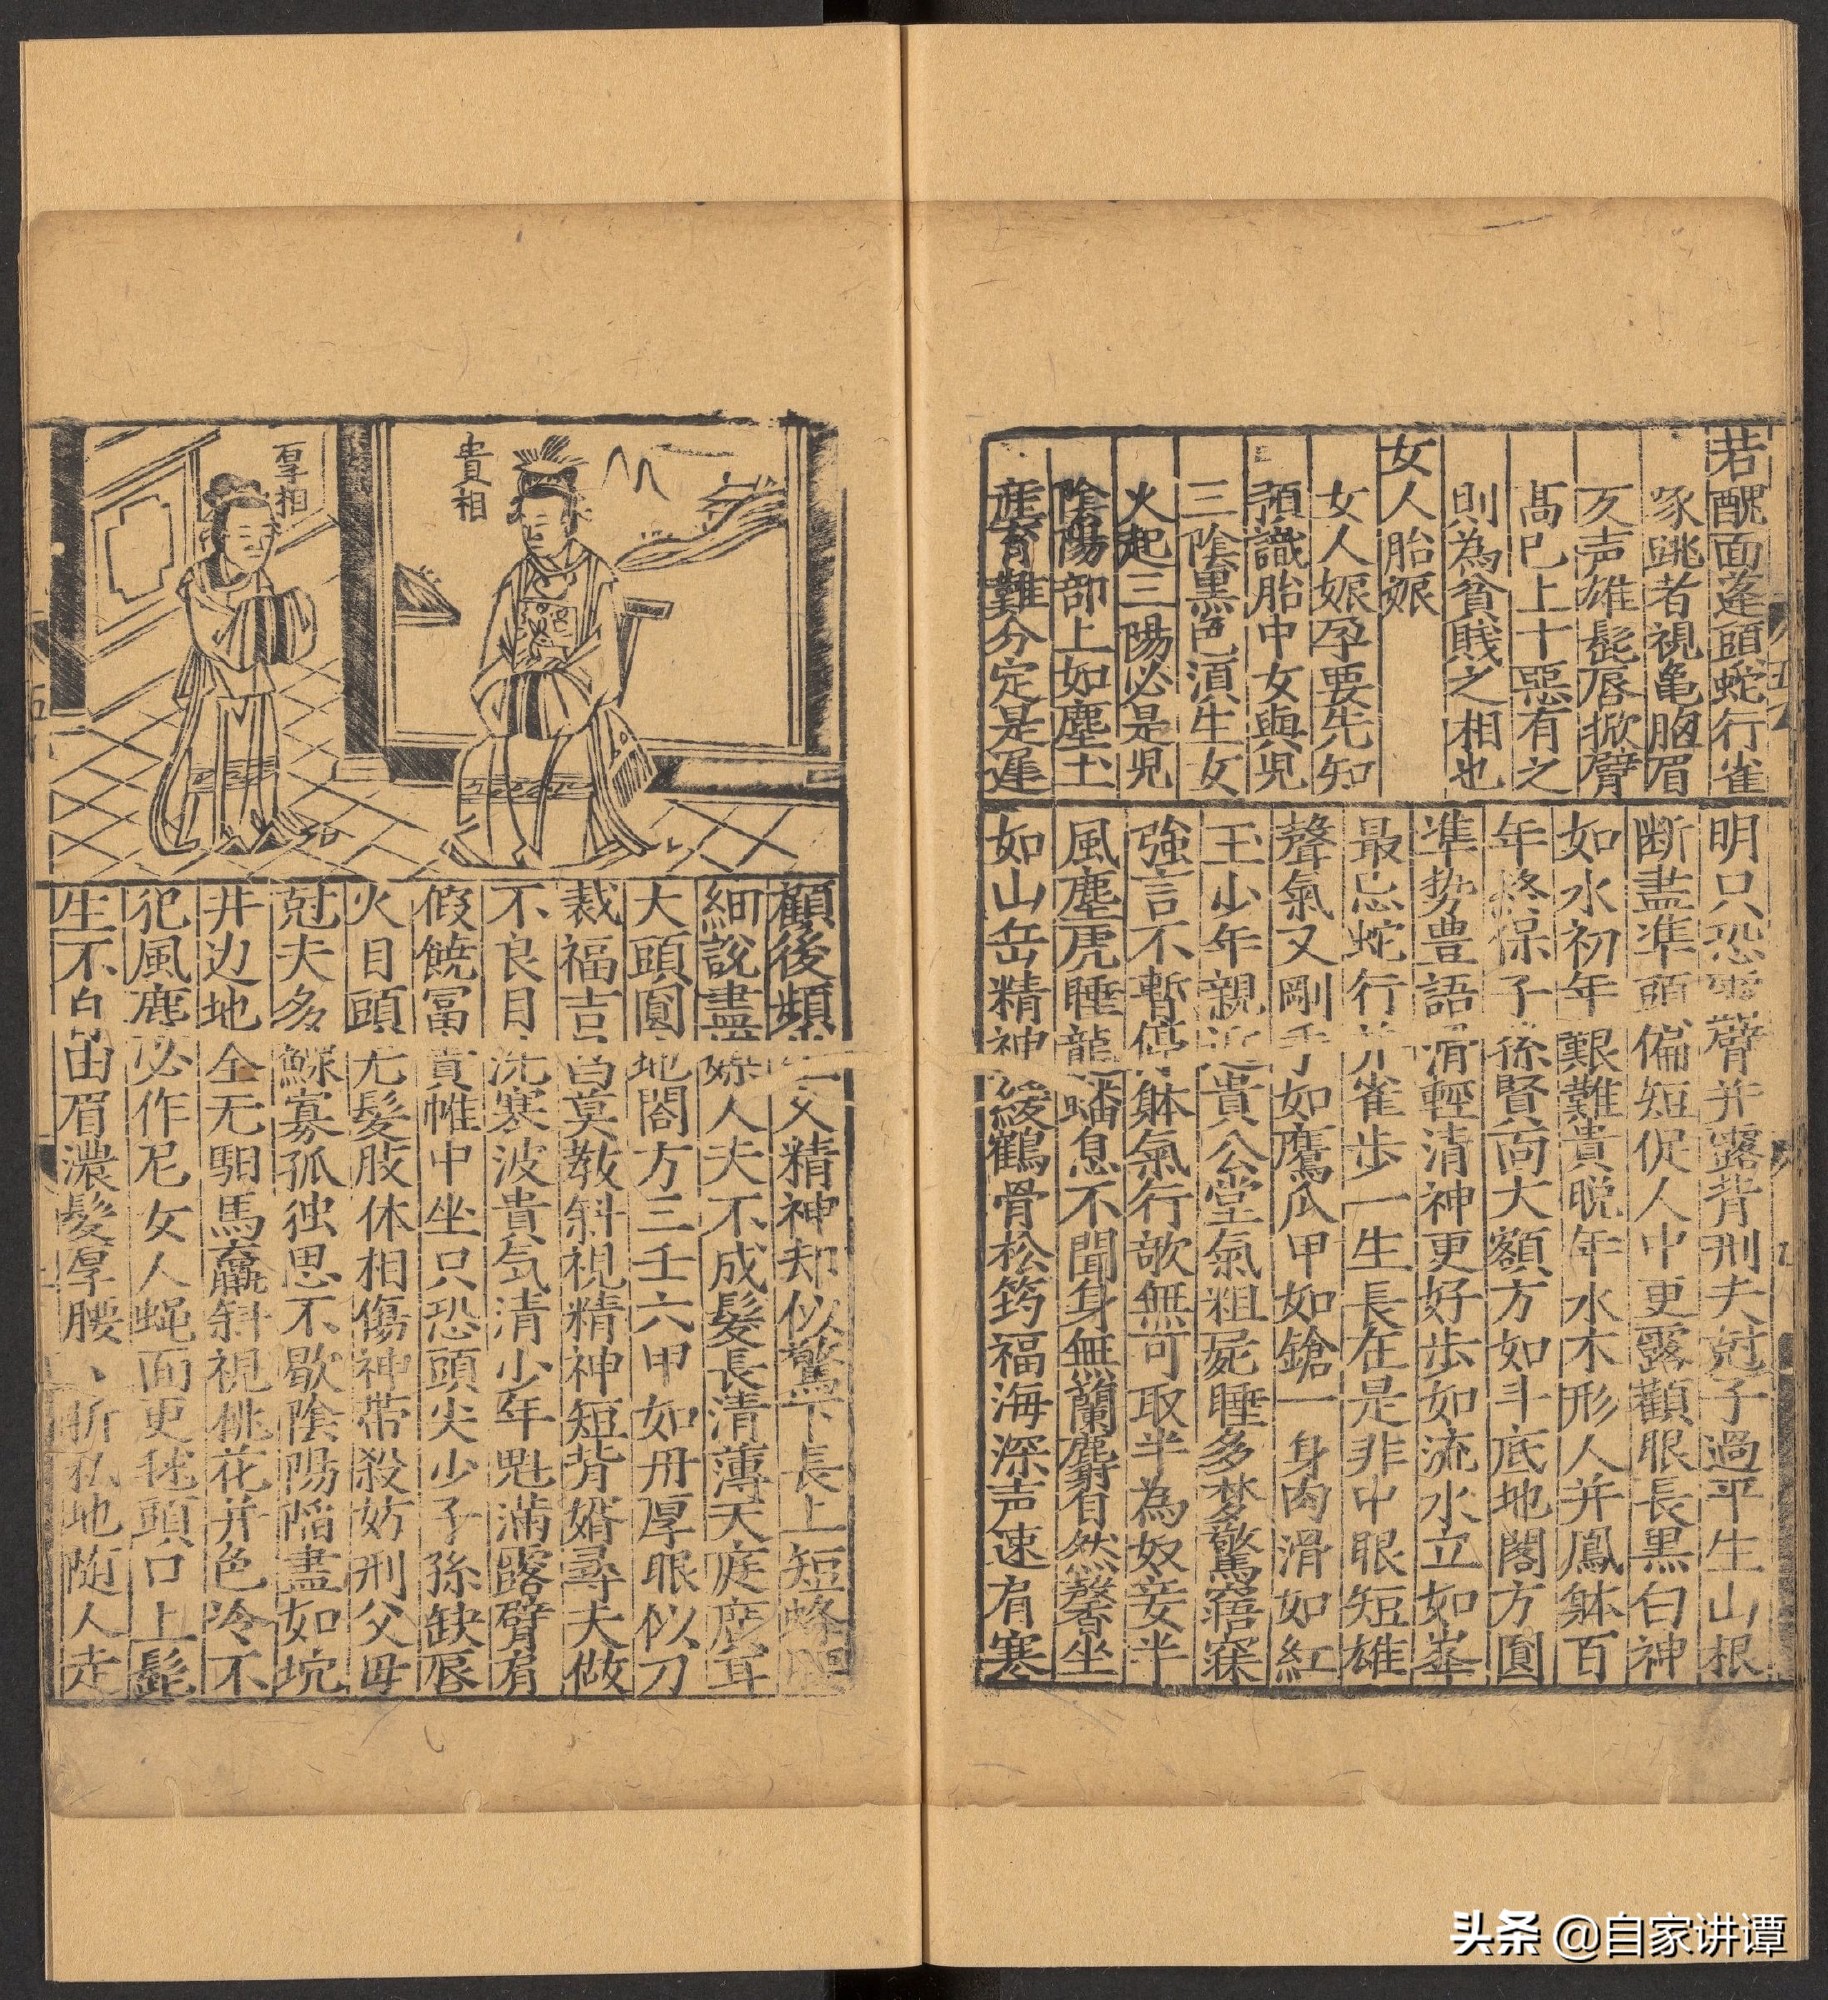 若醜面蓬頭蛇行雀
啄跳者視亀胸眉
交声雄髭唇掀臂
高已上十惡有之
則為貧賤之相也
女人胎娠
女人娠孕要先知
預識胎中女與児
三陰黒色湏生女
火起三陽必是児
陰陽部上如塵土
産育難分定是遲
明只恐 唇并露背刑夫尅子過平生山根
断盡準頭偏短促人中更露顴眼長黒白神
如水初年艱難貴晩年水木形人并鳳躰百
年終保子孫賢面大額方如斗底地閣方圓
準勢豊語清輕清神更好歩如流水立如峯
最忌蛇行并雀歩一生長在是非中眼短雄
聲氣又剛手如鷹瓜甲如鎗一身肉滑如紅
玉少年親近貴公堂氣粗屍睡多梦驚寤寐
強言不暫停躰氣行歆無可取半為奴妾半
風塵虎睡龍蟠息不聞身無蘭麝自然馨坐
如山岳精神 鶴骨松筠福海深声速有寒
貴相
厚相
顧後頻 父精神却似驚下長上短蜂腰
細說盡 嫁人夫不成髮長清薄天庭窄
大頭圓地閣方三壬六甲如冊厚眼似刀
裁福吉 莫教斜視精神短背婿尋夫做
不良目 寒波貴気清少年魁滿露臂有
假饒冨貴帷中坐只恐頭尖少子孫缺唇
火目頭无髮肢体相傷神帯殺妨刑父母
尅夫多鰥寡孤独思不歇陰陽陥盡如坑
井边地全无駅馬羸斜視桃花并色冷不
犯風塵必作尼女人蝿面更毬頭口上髭
生不 眉濃髮厚腰 折私地随人走
头条 @自家讲谭